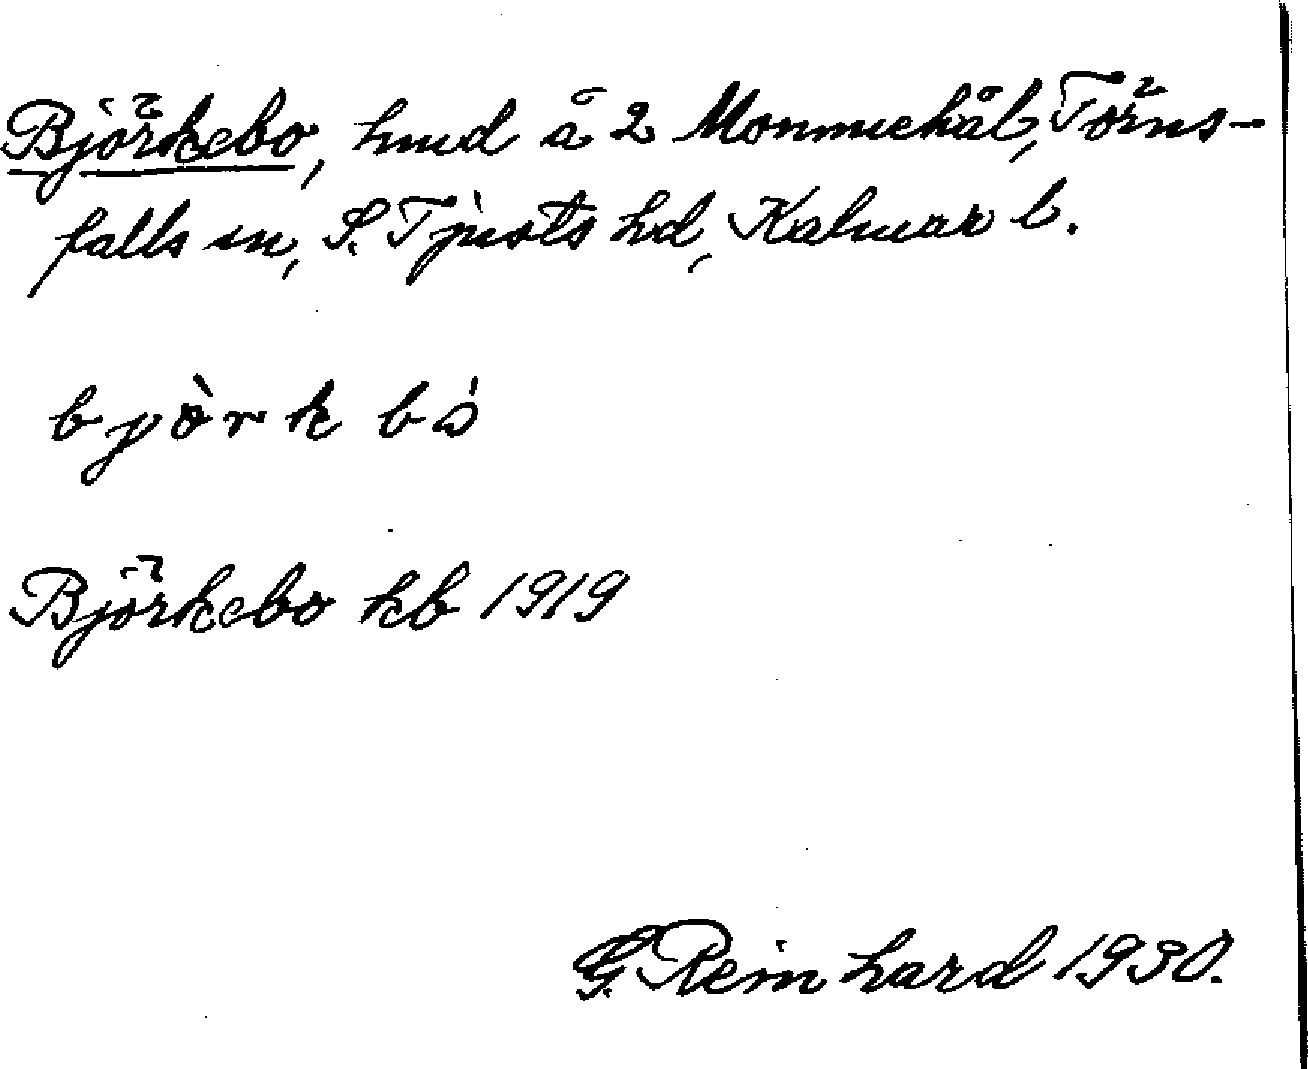 Björkebo, hmd å 2 Mommehål, Törns-
falls sn, S. Tjusts hd, Kalmar l.
bjòrk bó
Björkebo kb 1919
G. Reinhard 1930.